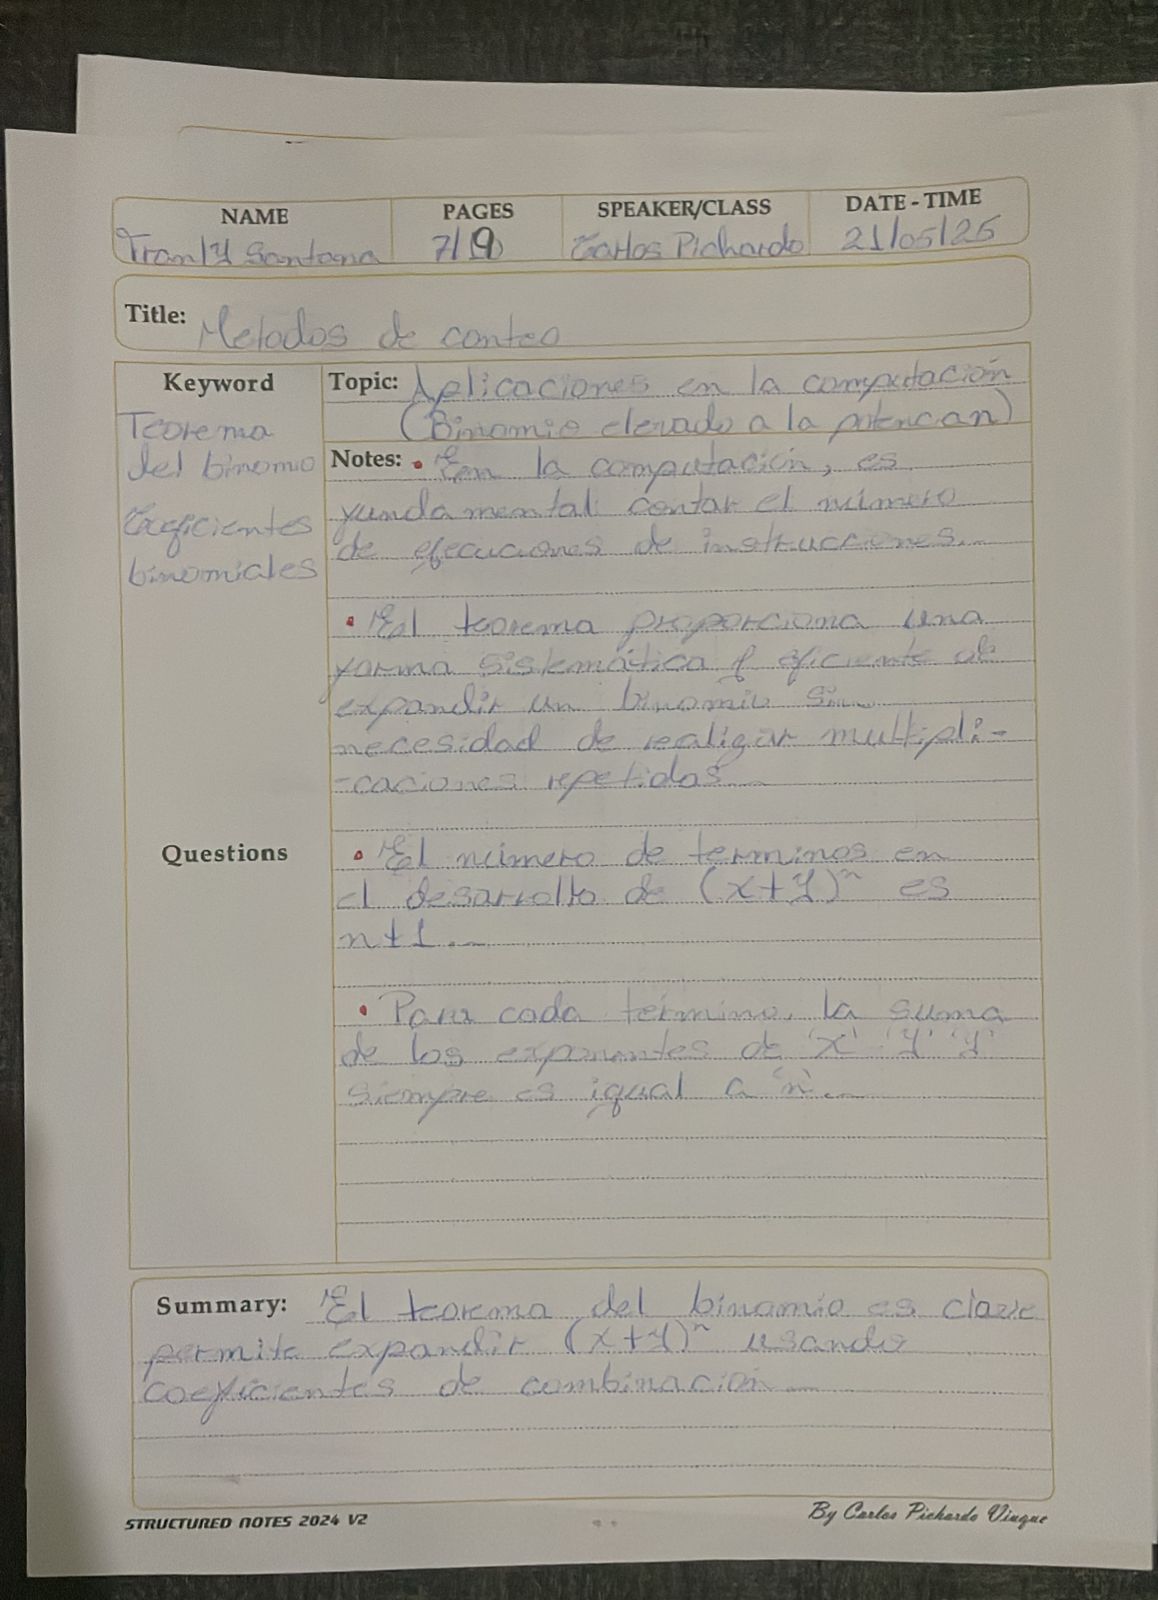 NAME PAGES SPEAKER/CLASS DATE - TIME
Santana 7/9 Carlos Pichardo 21/05/25
Title: Metodos de conteo
Keyword
Teorema
del binomio
Coeficientes
binomiales
Questions
Topic: Aplicaciones en la computación
(Binomio elevado a la potencia n)
Notes: • En la computación, es
fundamental contar el número
de ejecuciones de instrucciones.
• El teorema proporciona una
forma sistemática y eficiente de
expandir un binomio sin
necesidad de realizar multipli-
-caciones repetidas
• El número de terminos en
el desarrollo de (x+y)ⁿ es
n+1.
• Para cada término, la suma
de los exponentes de 'x' y 'y'
siempre es igual a 'n'.
Summary: El teorema del binomio es clave
permite expandir (x+y)ⁿ usando
coeficientes de combinación
STRUCTURED NOTES 2024 V2 By Carlos Pichardo Viuque